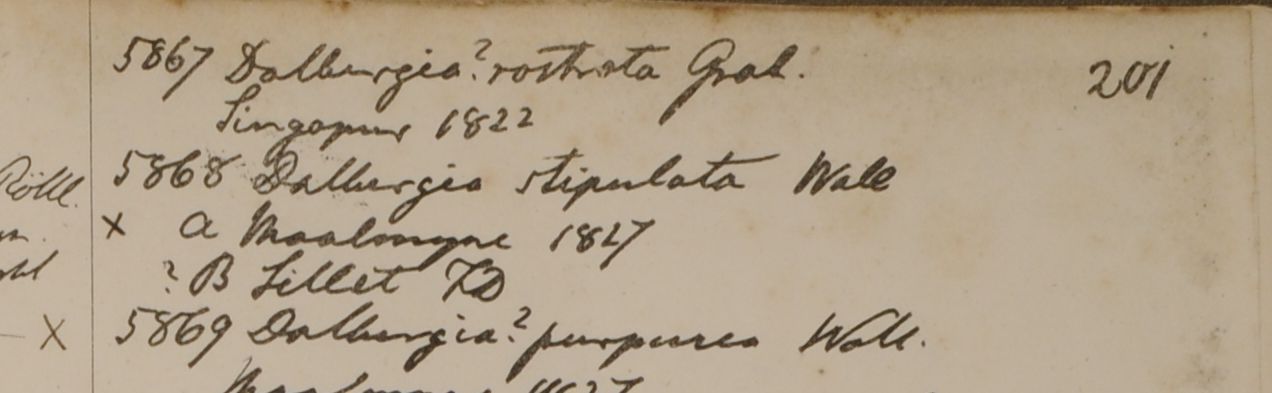 5867 Dalbergia? rostrata Grah. 201
Singapur 1822
5868 Dalbergia stipulata Wall
x a Moalmyne 1827
? B Sillet FD
x 5869 Dalbergia? purpurea Wall.
1827